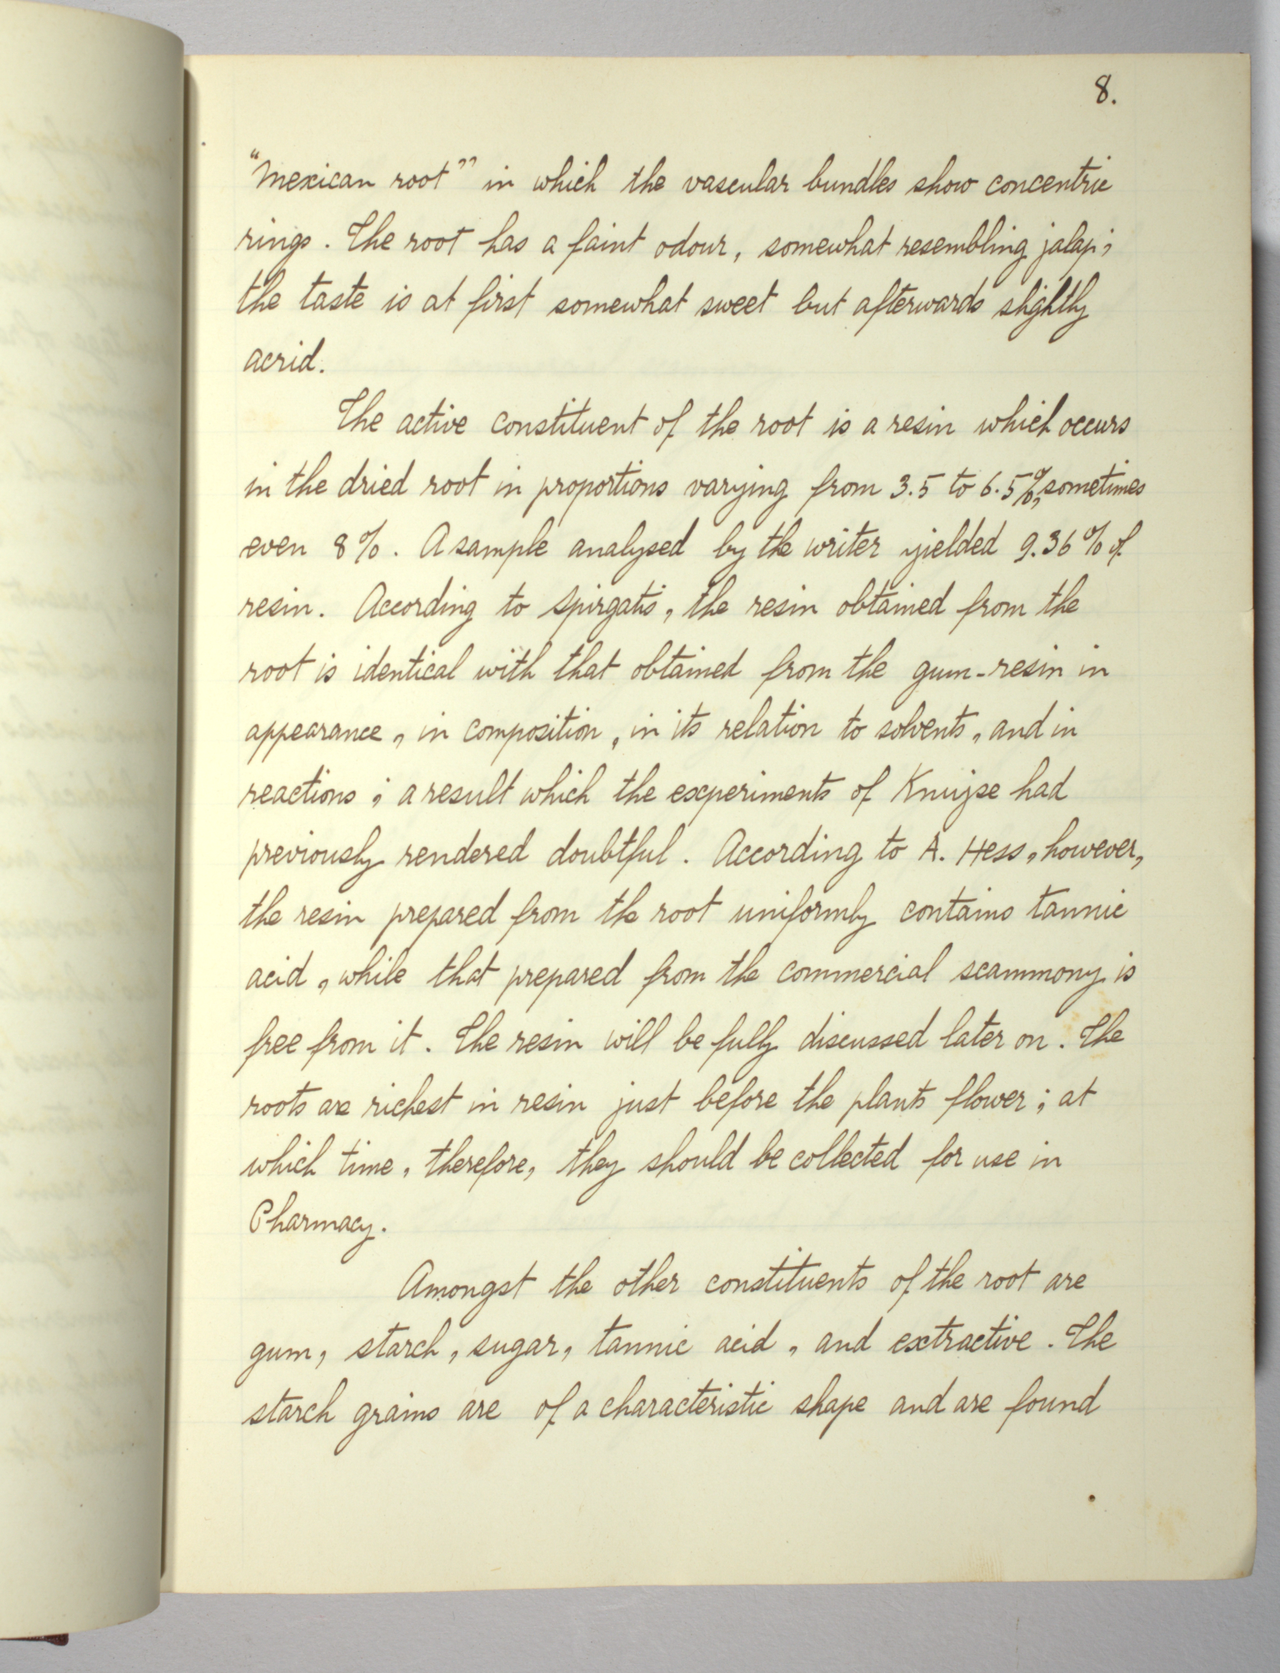 8.
"Mexican root" in which the vascular bundles show concentric
rings. The root has a faint odour, somewhat resembling jalap;
the taste is at first somewhat sweet but afterwards slightly
acrid.
The active constituent of the root is a resin which occurs
in the dried root in proportions varying from 3.5 to 6.5%, sometimes
even 8%. A sample analysed by the writer yielded 9.36% of
resin. According to Spirgatis, the resin obtained from the
root is identical with that obtained from the gum-resin in
appearance, in composition, in its relation to solvents, and in
reactions; a result which the experiments of Knuijse had
previously rendered doubtful. According to A. Hess, however,
the resin prepared from the root uniformly contains tannic
acid, while that prepared from the commercial scammony is
free from it. The resin will be fully discussed later on. The
roots are richest in resin just before the plants flower; at
which time, therefore, they should be collected for use in
Pharmacy.
Amongst the other constituents of the root are
gum, starch, sugar, tannic acid, and extractive. The
starch grains are of a characteristic shape and are found